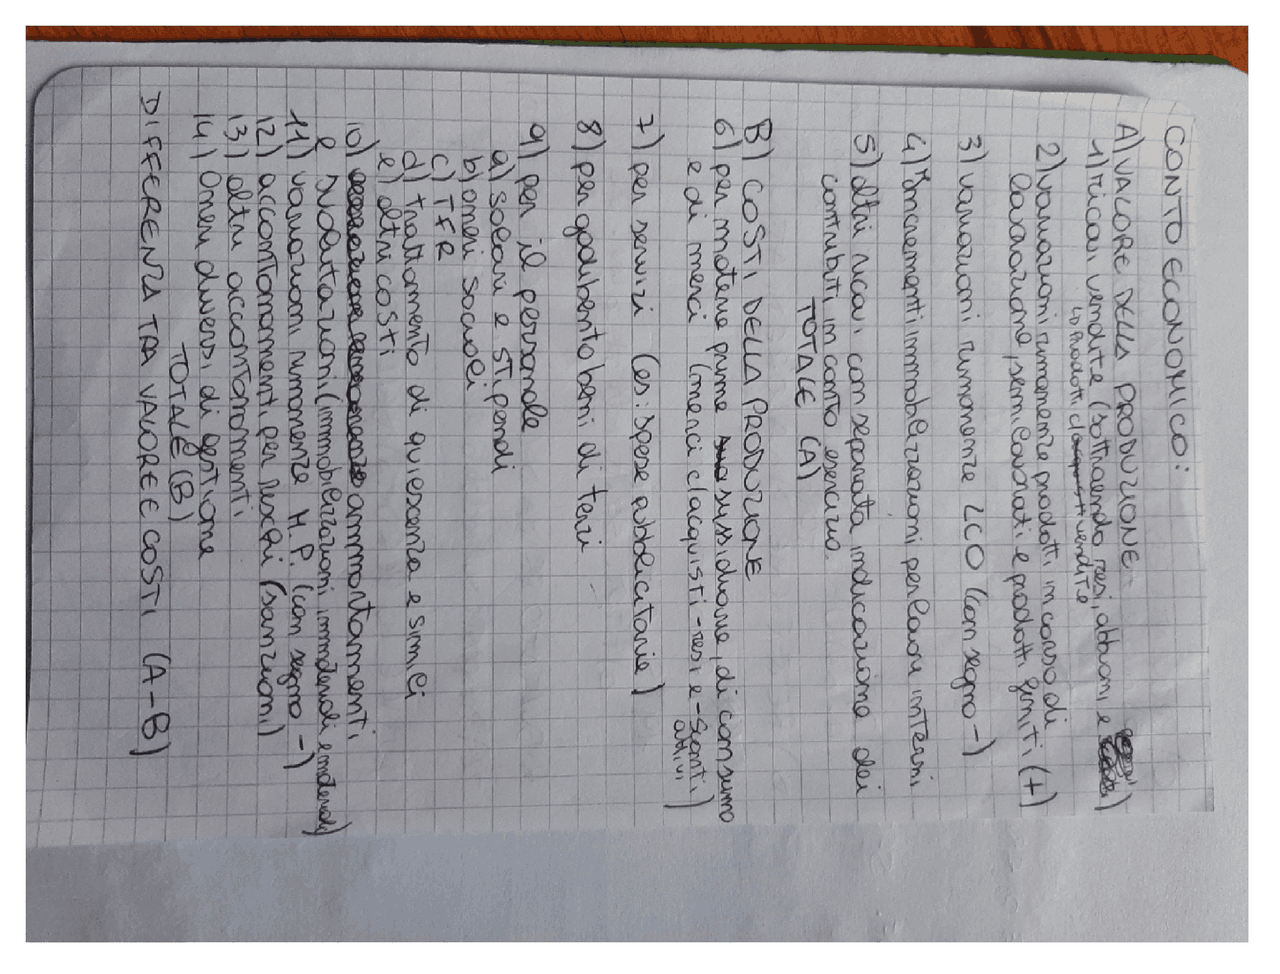 CONTO ECONOMICO:
A) VALORE DELLA PRODUZIONE
1) ricavi vendite (sottraendo resi, abbuoni e )
↳ Prodotti c/ vendite
2) variazioni rimanenze prodotti in corso di
lavorazione, semilavorati e prodotti finiti (+)
3) variazioni rimanenze LCO (con segno -)
4) Incrementi immobilizzazioni per lavori interni
5) altri ricavi con separata indicazione dei
contributi in conto esercizio
TOTALE (A)
B) COSTI DELLA PRODUZIONE
6) per materie prime sussidiarie, di consumo
e di merci (merci c/acquisti - resi e - sconti
attivi)
7) per servizi (es: spese pubblicitarie)
8) per godibento beni di terzi
9) per il personale
a) salari e stipendi
b) oneri sociali
c) TFR
d) trattamento di quiescenza e simili
e) altri costi
10) ammortamenti
e svalutazioni (immobilizzazioni immateriali e materiali)
11) variazioni rimanenze M.P. (con segno -)
12) accantonamenti per rischi (sanzioni)
13) altri accantonamenti
14) Oneri diversi di gestione
TOTALE (B)
DIFFERENZA TRA VALORE E COSTI (A-B)